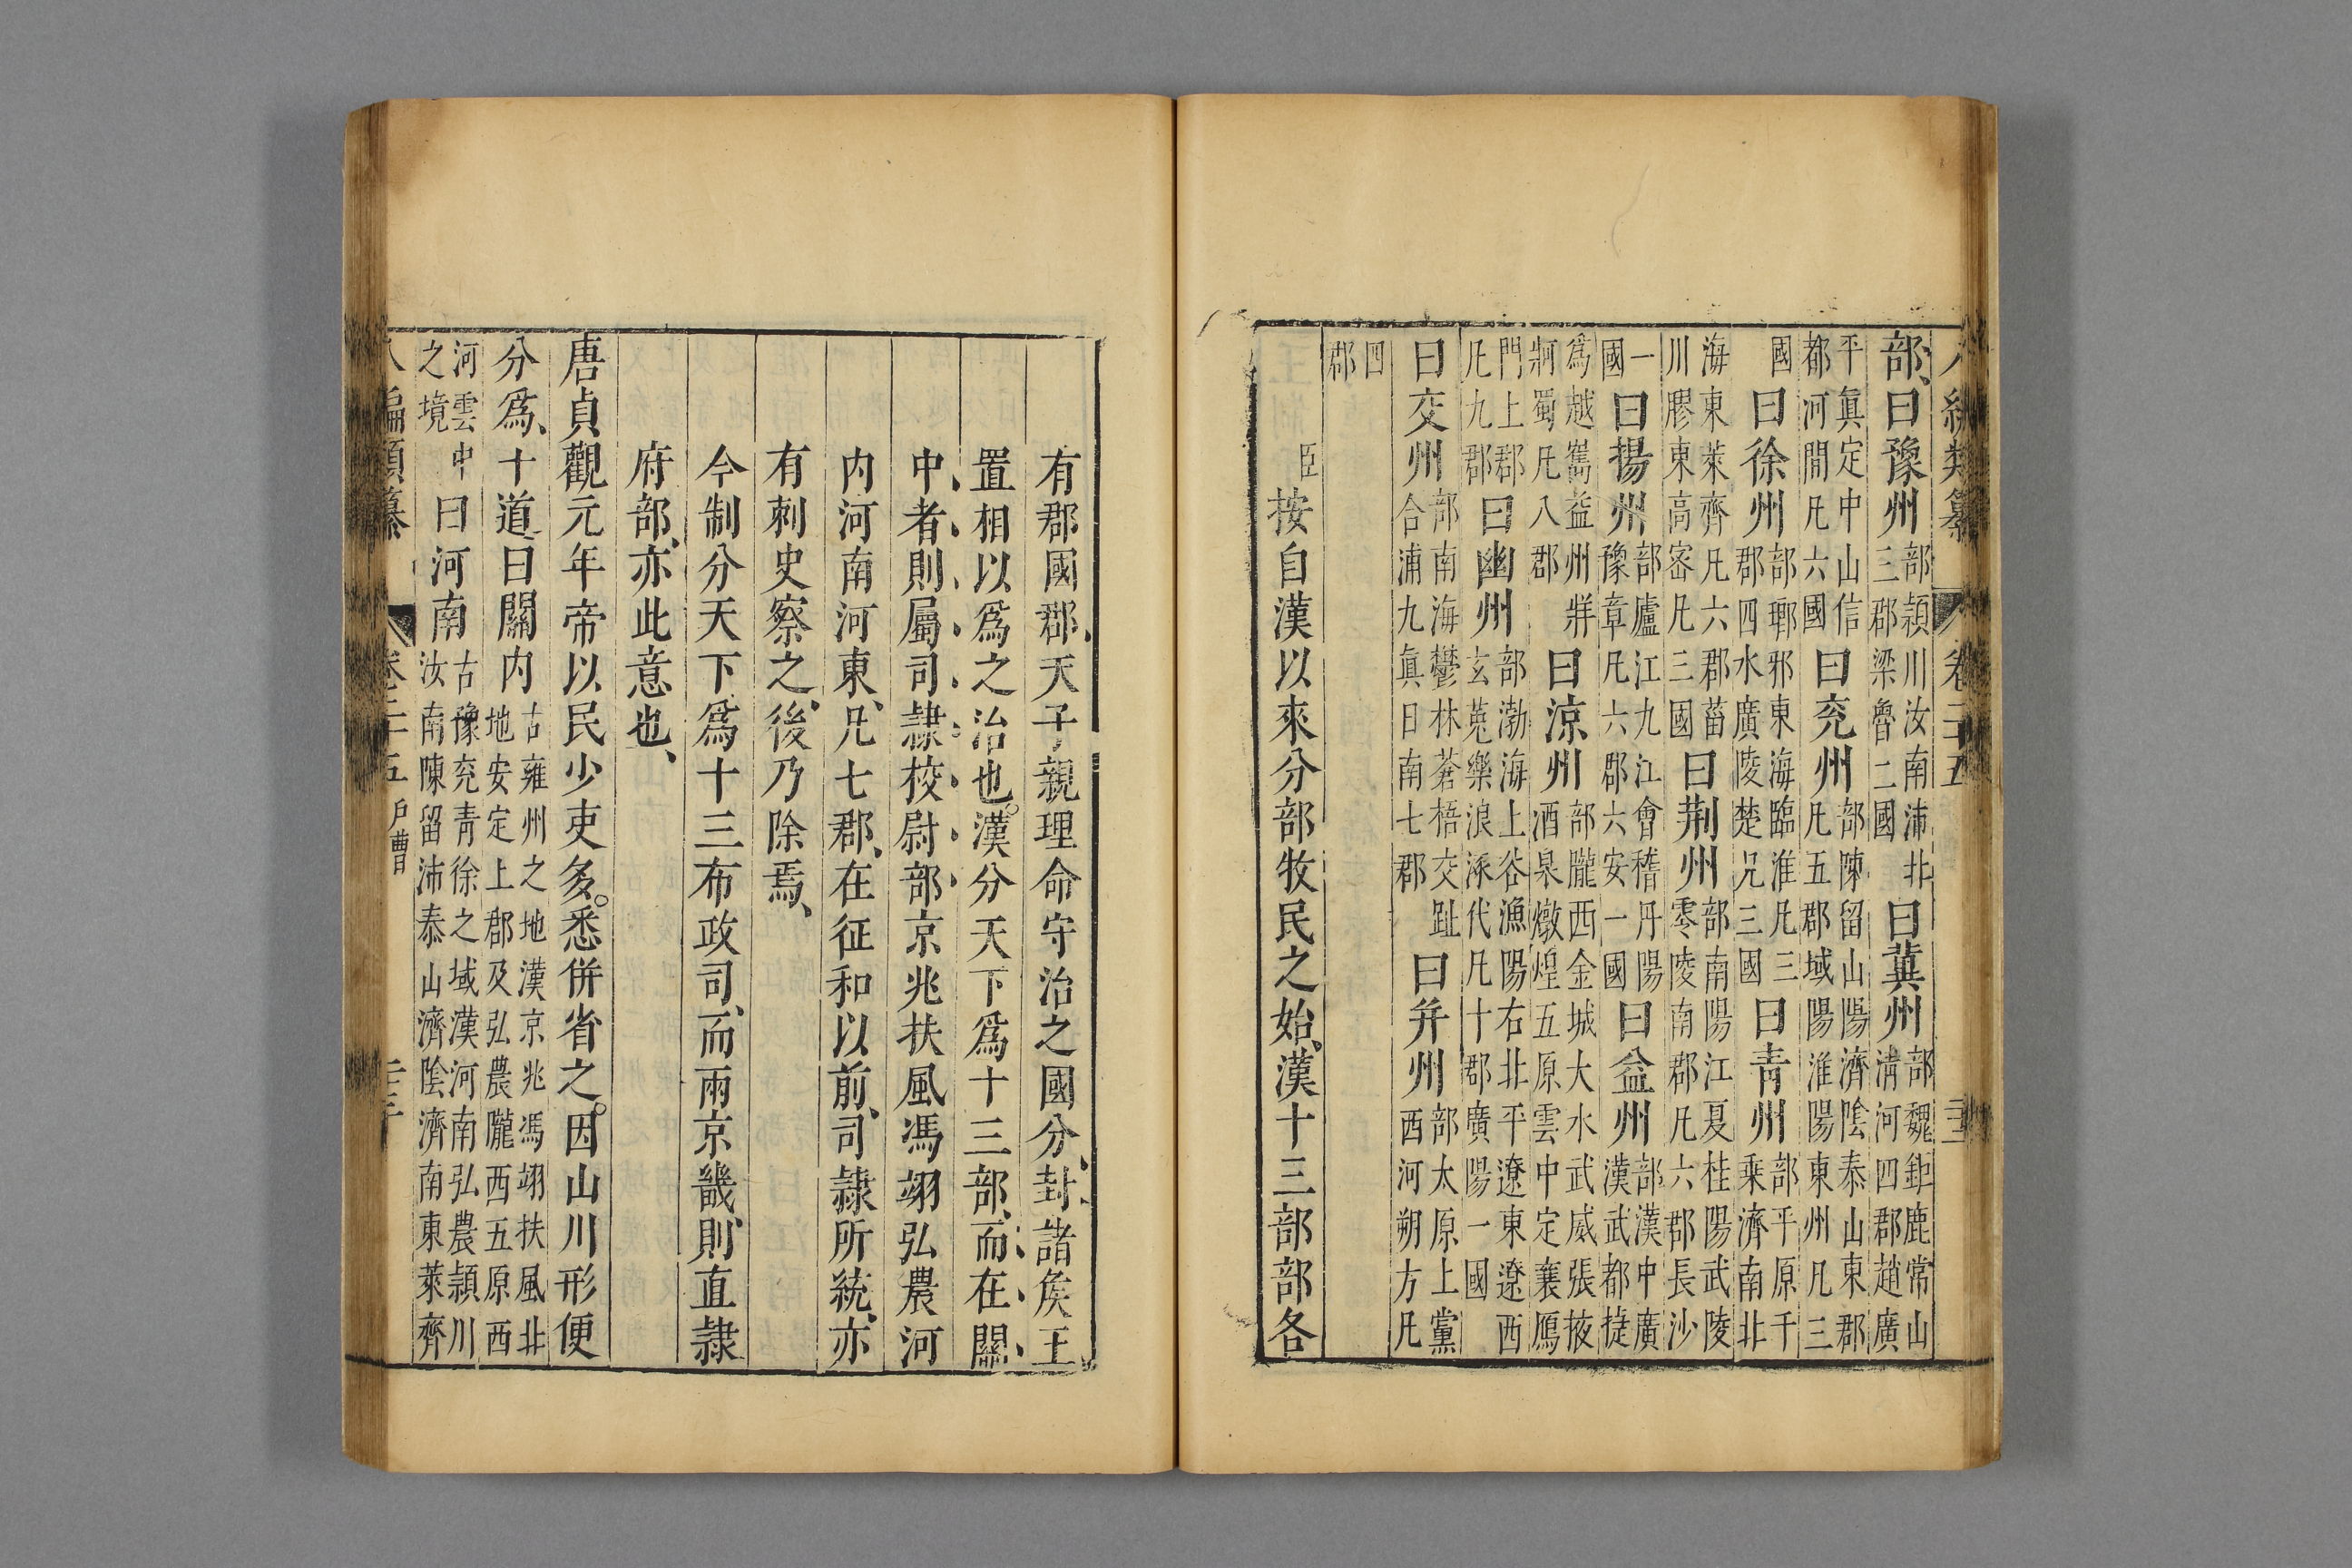 部曰豫州部頴川汝南沛北三郡梁魯二國曰冀州部魏鉅鹿常山清河四郡趙廣
平眞定中山信都河間凡六國曰兗州部陳留山陽濟陰泰山東郡凡五郡域陽淮陽東州凡三
國曰徐州部瑯邪東海臨淮凡三郡四水廣陵楚凡三國曰青州部平原千乘濟南北
海東萊齊凡六郡菑川膠東高密凡三國曰荆州部南陽江夏桂陽武陵零陵南郡凡六郡長沙
一國曰揚州部廬江九江會稽丹陽豫章凡六郡六安一國曰益州部漢中廣漢武都揵
爲越嶲益州牂牁蜀凡八郡曰涼州部隴西金城大水武威張掖酒泉燉煌五原雲中定襄鴈
門上郡凡九郡曰幽州部渤海上谷漁陽右北平遼東遼西玄莵樂浪涿代凡十郡廣陽一國
曰交州部南海鬱林蒼梧交趾合浦九眞日南七郡曰并州部太原上黨西河朔方凡
四郡
臣按自漢以來分部牧民之始、漢十三部部各
有郡國郡、天子親理命守治之國分、封諸矦王
置相以爲之治也。漢分天下爲十三部、而在關
中者則屬司隷校尉部京兆扶風馮翊弘農河
内河南河東、凡七郡、在征和以前、司隷所統、亦
有刺史察之、後乃除焉、
今制分天下爲十三布政司、而兩京畿、則直隷
府部、亦此意也、
唐貞觀元年帝以民少吏多。悉併省之。因山川形便
分爲、十道、曰關内古雍州之地漢京兆馮翊扶風北地安定上郡及弘農隴西五原西
河雲中之境曰河南古豫兗青徐之域漢河南弘農頴川汝南陳留沛泰山濟陰濟南東萊齊
八編類纂 卷二十五 戶曹